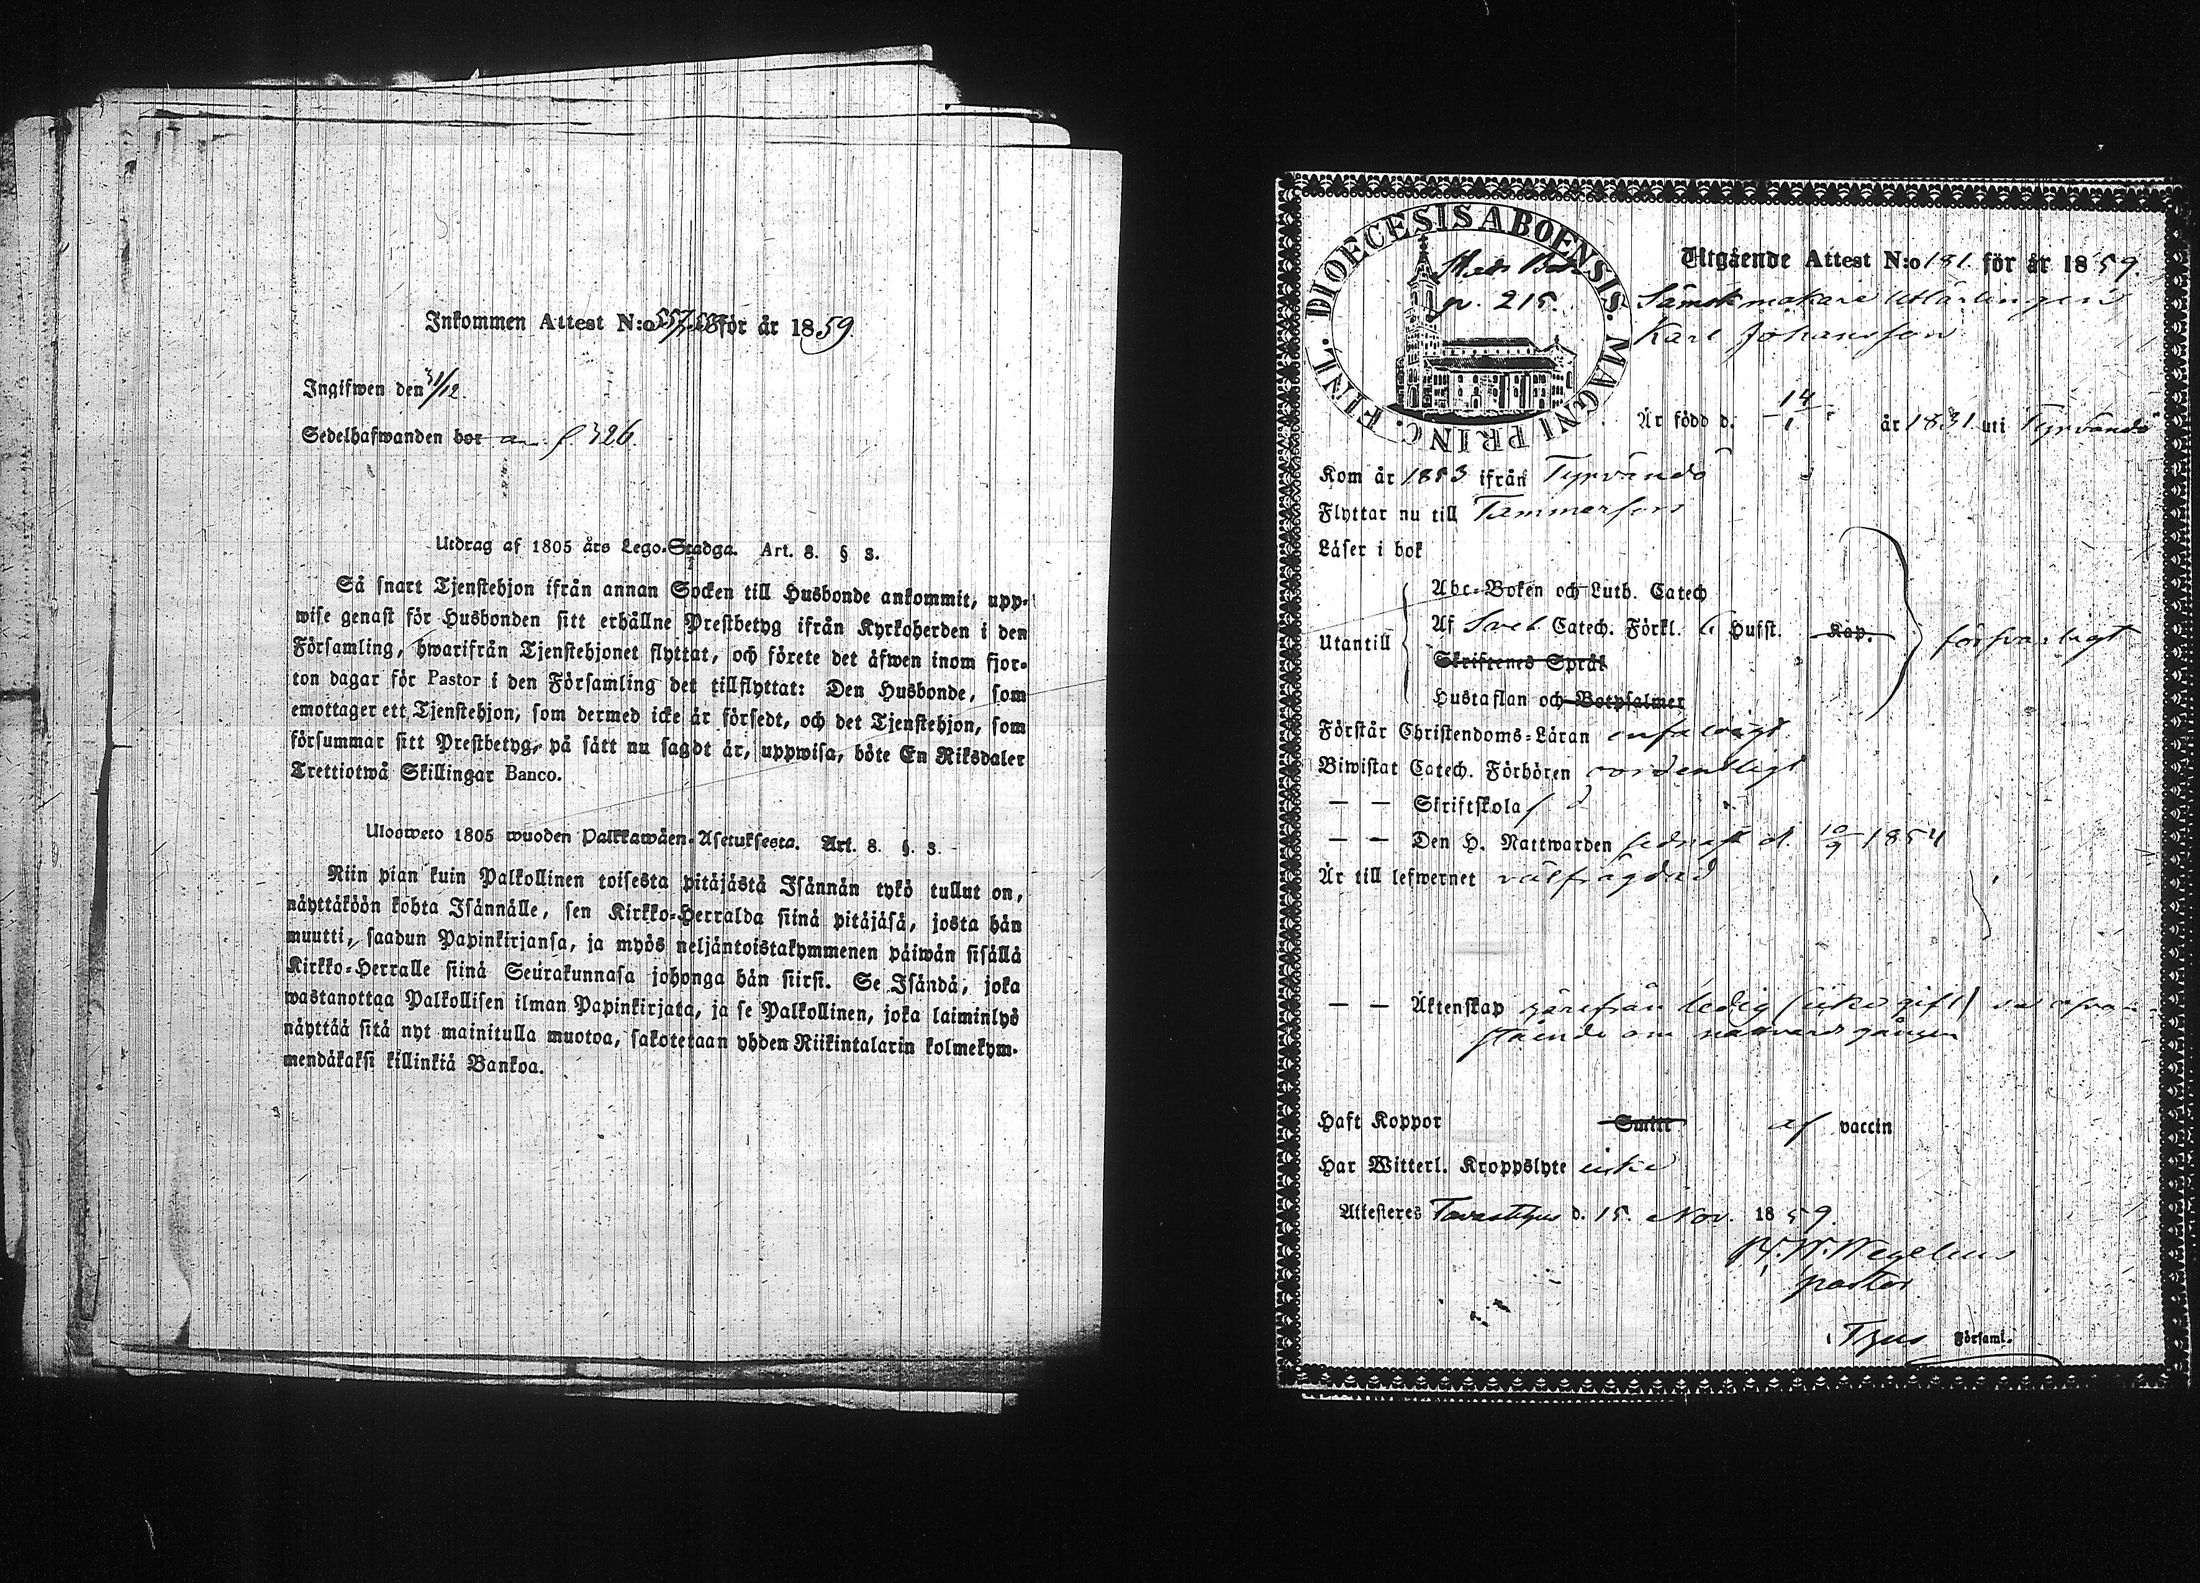 Inkommen Attest N:o 557,58 för år 1859.
Ingifwen den 31/12.
Sedelhafwanden bor p 326.
Utdrag af 1805 års Lego-Stadga. Art. 8. § 3.
Så snart Tjenstehjon ifrån annan Socken till Husbonde ankommit, upp-
wise genast för Husbonden sitt erhållne Prestbetyg ifrån Kyrkoherden i den
Församling, hwarifrån Tjenstehjonet flyttat, och förete det äfwen inom fjor-
ton dagar för Pastor i den Församling det tillflyttat: Den Husbonde, som
emottager ett Tjenstehjon, som dermed icke är försedt, och det Tjenstehjon, som
försummar sitt Prestbetyg, på sätt nu sagdt är, uppwisa, böte En Riksdaler
Trettiotwå Skillingar Banco.
Ulosweto 1805 wuoden Palkkawäen-Asetuksesta. Art. 8. §. 3.
Niin pian kuin Palkollinen toisesta pitäjästä Isännän tykö tullut on,
näyttäköön kohta Isännälle, sen Kirkko-Herralda siinä pitäjäsä, josta hän
muutti, saadun Papinkirjansa, ja myös neljäntoistakymmenen päiwän sisällä
Kirkko-Herralle siinä Seurakunnasa johonga hän siirsi. Se Isändä, joka
wastanottaa Palkollisen ilman Papinkirjata, ja se Palkollinen, joka laiminlyö
näyttää sitä nyt mainitulla muotoa, sakotetaan yhden Riikintalarin kolmekym-
mendäkaksi killinkiä Bankoa.
DIOECESIS ABOENSIS. MAGNI PRINC. FINL.
p. 215.
Utgående Attest N:o 131. för år 1859.
Sämskmakare Utlärlingen
Karl Johansson
Är född d. 14/1 år 1831 uti Tyrvändö
Kom år 1853 ifrån Tyrvändö
Flyttar nu till Tammerfors
Läser i bok
Abc-Boken och Luth. Catech
Utantill
Af Sveb Catech. Förkl. 6 Hufst. Kap.
försvarligt
Skriftenes Språk
Hustaflan och Botpsalmer
Förstår Christendoms-Läran enfaldigt
Biwistat Catech. Förhören ordentligt
— — Skriftskola
— — Den H. Nattwarden sednast d. 10/9 1854
Är till lefwernet välfrägdad
— — Äktenskap härifrån ledig (icke gift)
stående om nattvardsgången
Haft Koppor Smitt af vaccin
Har Witterl. Kroppslyte icke
Attesteres Tavastehus d. 15. Nov. 1859.
Wegelius
pastor
i Thus Församl.